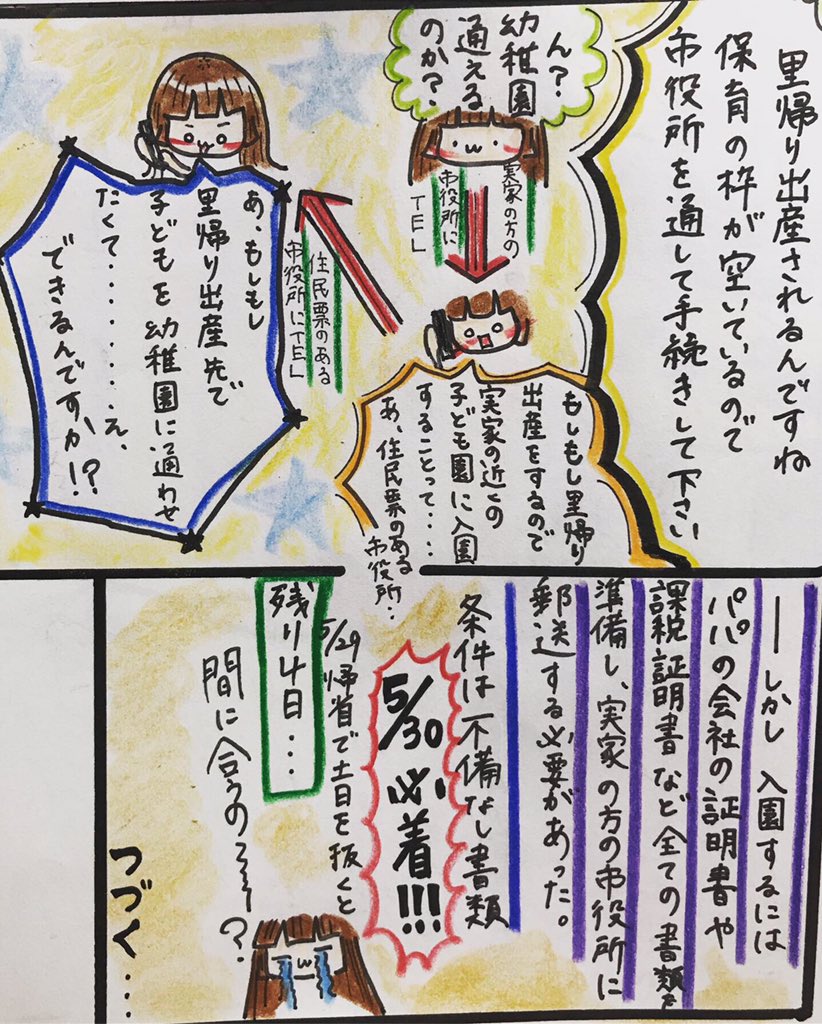 里帰り出産されるんですね
保育の枠が空いているので
市役所を通して手続きして下さい
ん?
幼稚園
通える
のか?
実家の方の
市役所に
TEL
もしもし里帰り
出産をするので
実家の近くの
子ども園に入園
することって・・・・
あ、住民票のある
市役所・・
住民票のある
市役所にTEL
あ、もしもし
里帰り出産先で
子どもを幼稚園に通わせ
たくて・・・・・・・え、
できるんですか!?
―しかし 入園するには
パパの会社の証明書や
課税証明書など全ての書類を
準備し、実家の方の市役所に
郵送する必要があった。
条件は不備なし書類
5/30必着!!!
5/29帰省で土日を抜くと
残り4日・・・
間に合うの〜〜?
つづく・・・・